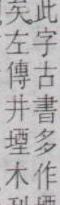 此字古書多作
矣左傳井堙木